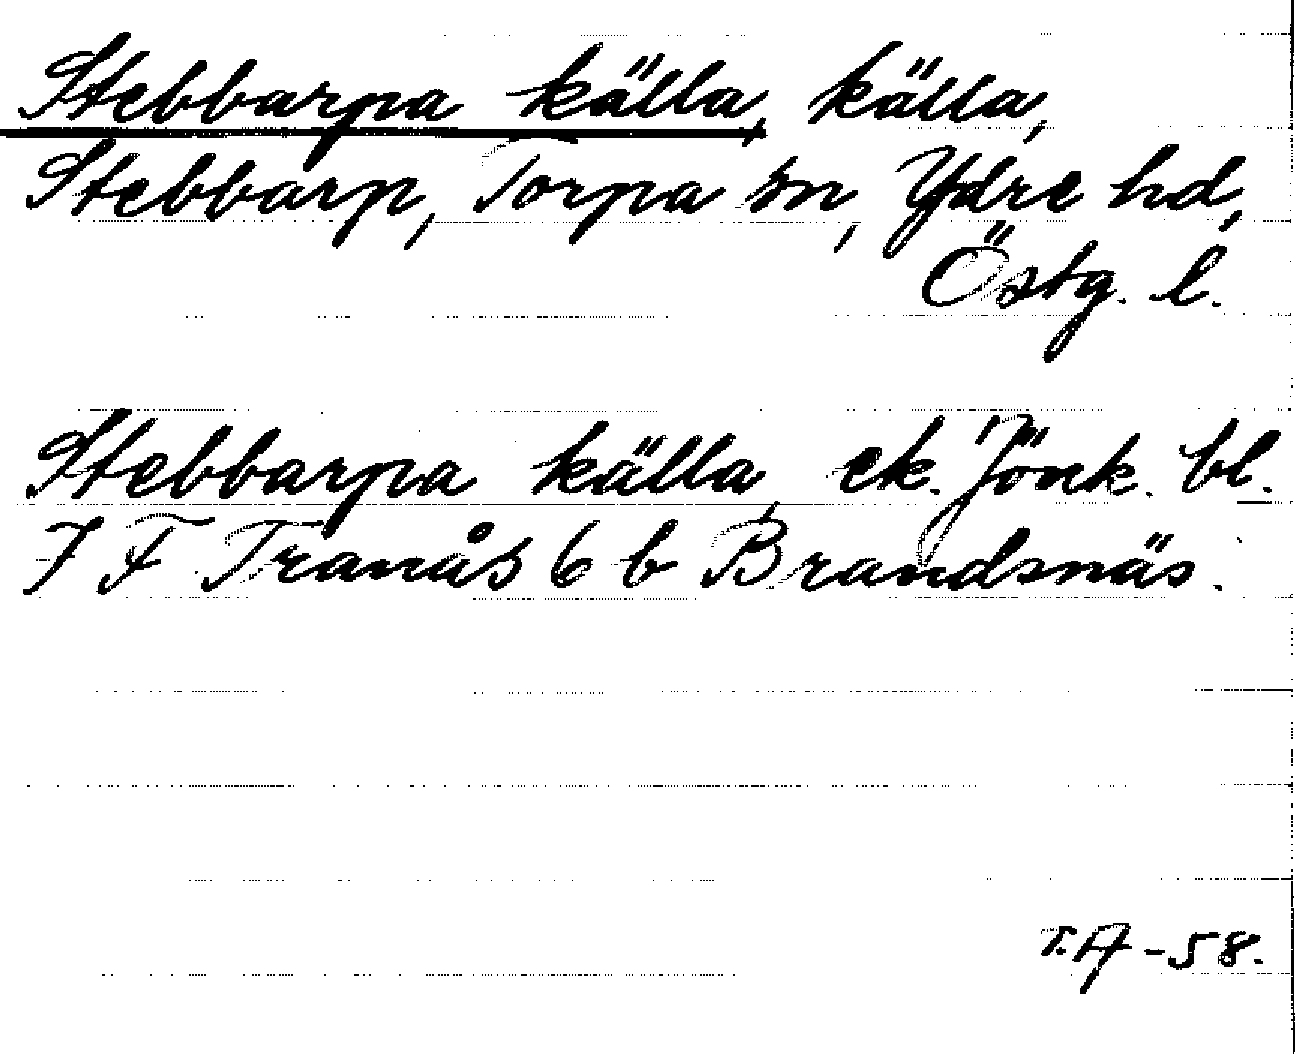 Stebbarpa källa, källa,
Stebbarp, Torpa sn, Ydre hd,
Östg. l.
Stebbarpa källa, ek. Jönk. bl.
7 F Tranås 6 b Brandsnäs.
T.A -58.